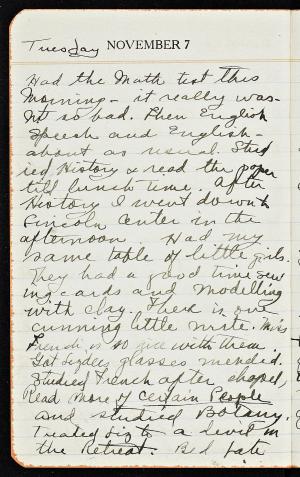 Tuesday NOVEMBER 7
Had the Math test this
Morning - it really was-
nt so bad. Then English
Speech and English -
about as usual. Stud
ied History & read the paper
till lunch time. After
History I went down to
Lincoln Center in the
afternoon. Had my
same table of little girls.
They had a good time sew
ing cards and modelling
with clay. There is one
cunning little mite. Miss
French is so nice with them
Got Lizdees glasses mended.
Studied French after chapel,
Read more of Certain People
and studied Botany.
Treated Liz to a devil in
the Retreat. Bed late